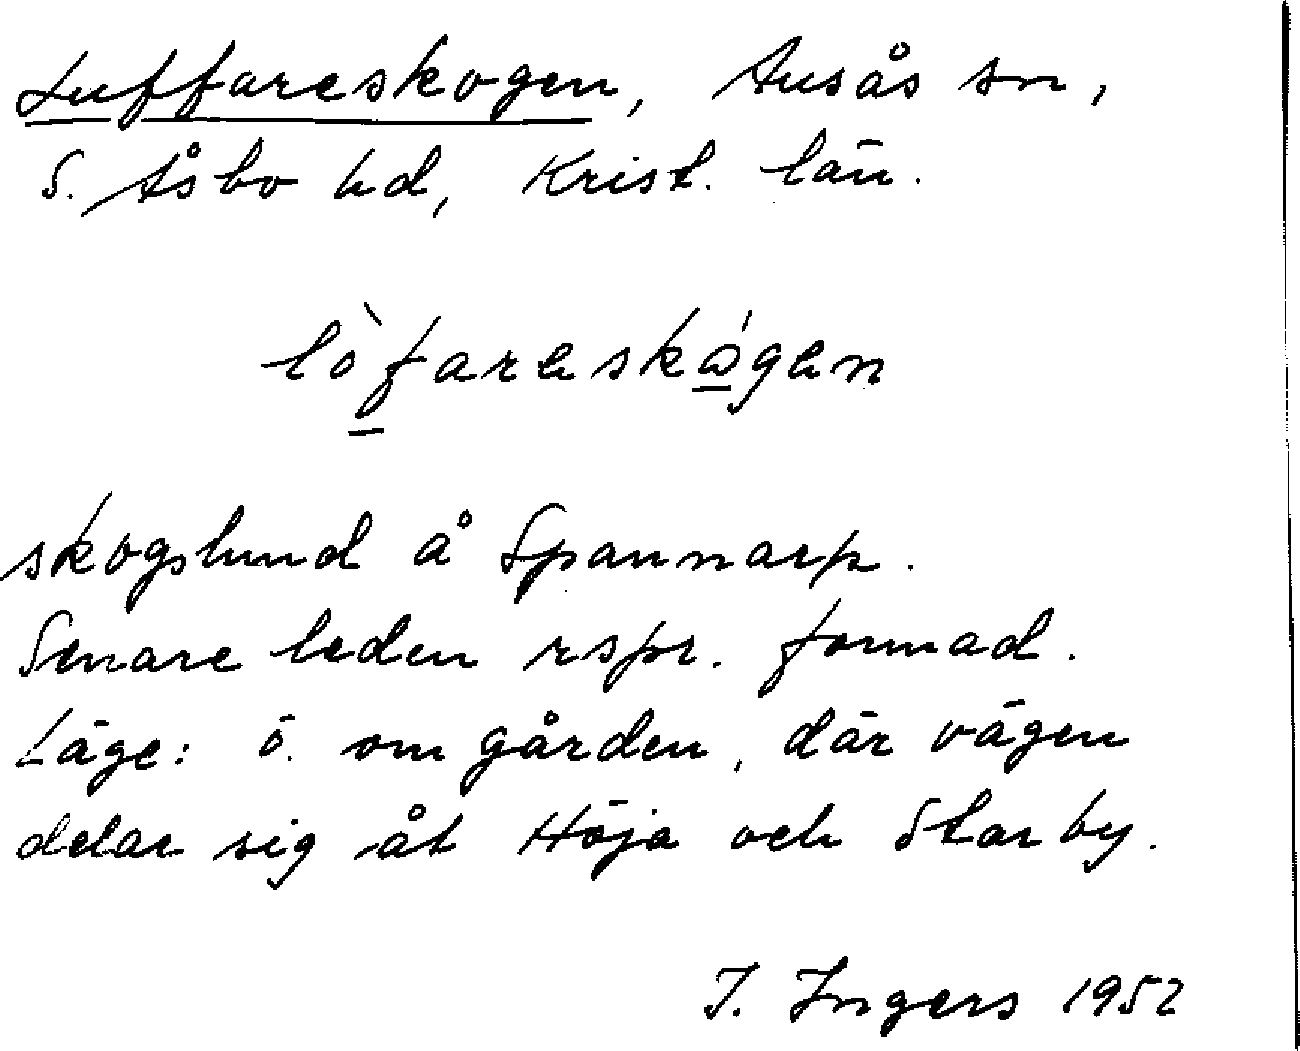 Luffareskogen, Ausås sn,
S. Åsbo hd, Krist. län.
lòfareskǻgen
skogslund å Spannarp.
Senare leden rspr. formad.
Läge: ö. om gården, där vägen
delar sig åt Höja och Starby.
I. Ingers 1952